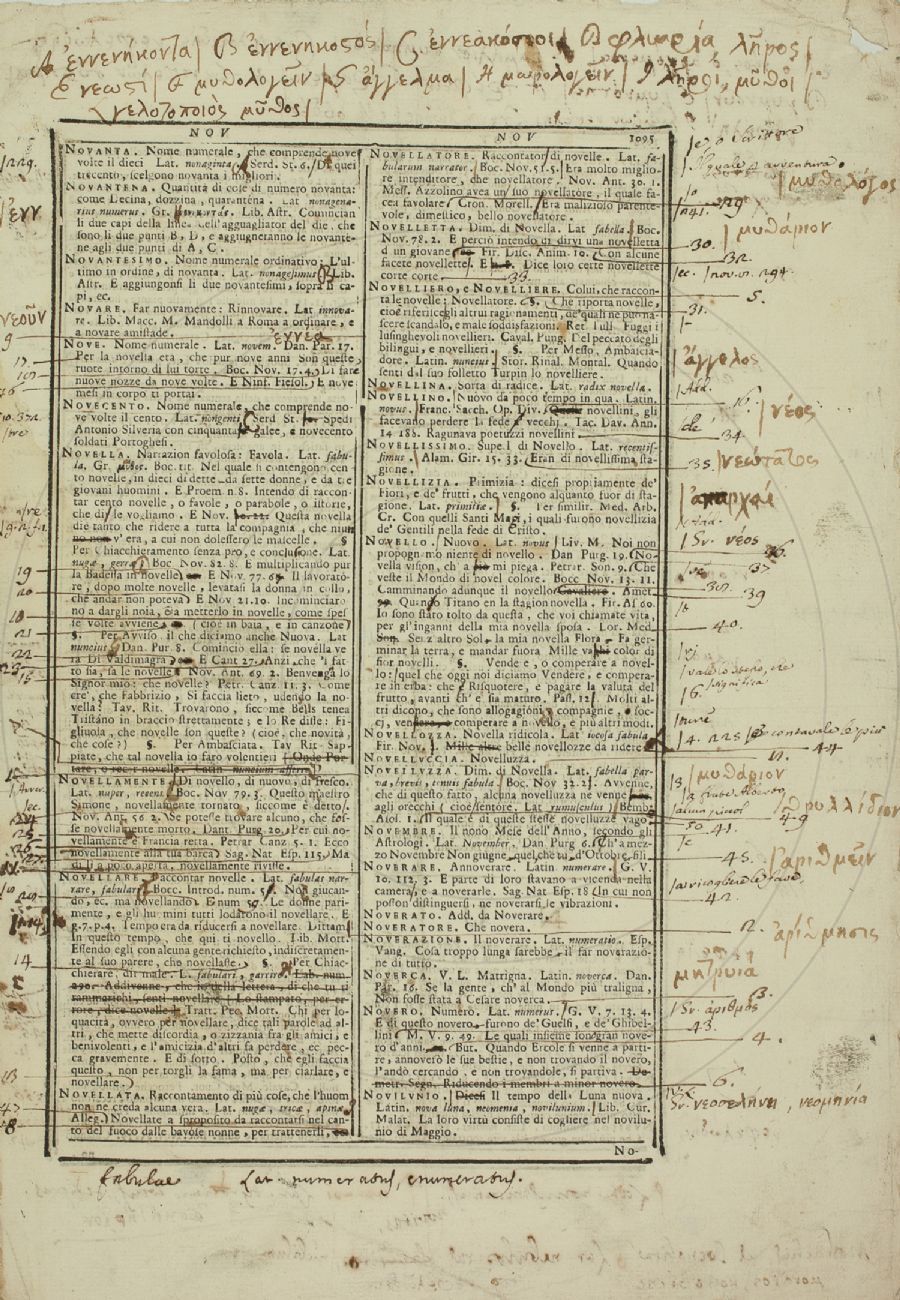 A ἐννενήκοντα| B ἐννενηκοστός| C ἐννεακόσιοι| D φλυαρία, λῆρος|
E νεωστί| F μυθολογεῖν| G ἄγγελμα| H μωρολογεῖν| λῆροι, μῦθοι|
γελοτοποιὸς μῦθος|
NOV
NOVANTA. Nome numerale, che comprende nove
volte il dieci Lat. nonaginta. Serd. St. 6. Di quei
trecento, scelgono novanta i migliori.
NOVANTENA. Quantità di cose di numero novanta:
come Decina, dozzina, quarantena. Lat. nonagena-
rius numerus. Gr. Lib. Astr. Comincian
li due capi della linea dell'agguagliator del die, che
sono li due punti B, D, e aggiugneranno le novante-
ne agli due punti di A, C.
NOVANTESIMO. Nome numerale ordinativo: L'ul-
timo in ordine, di novanta. Lat. nonagesimus. Lib.
Astr. E aggiungonsi li due novantesimi, sopra li ca-
pi, ec.
NOVARE. Far nuovamente: Rinnovare. Lat. innova-
re. Lib. Macc. M. Mandolli a Roma a ordinare, e
a novare amistade.
ἐννέα
NOVE. Nome numerale. Lat. novem. Dan. Par. 17.
Per la novella età, che pur nove anni Son queste
ruote intorno di lui torte. Boc. Nov. 17. 4. Di fare
nuove nozze da nove volte. E Ninf. Fiesol. E nove
mesi in corpo ti portai.
NOVECENTO. Nome numerale, che comprende no-
ve volte il cento. Lat. nongenti. Serd. St. Spedì
Antonio Silveria con cinquanta Galee, e novecento
soldati Portoghesi.
NOVELLA. Narrazion favolosa: Favola. Lat. fabu-
la. Gr. μῦθος. Boc. tit. Nel quale si contengono cen
to novelle, in dieci dì dette da sette donne, e da tre
giovani huomini. E Proem n. 8. Intendo di raccon-
tar cento novelle, o favole, o parabole, o istorie,
che dir le vogliamo. E Nov. Questa novella
die tanto che ridere a tutta la compagnia, che niun
v'era, a cui non dolessero le mascelle. §
Per Chiacchieramento senza pro, e conclusione. Lat.
nugæ, gerræ. Boc Nov. 82. 8. E multiplicando pur
la Badessa in novelle. E Nov. 77. 67. Il lavorato-
re, dopo molte novelle, levatasi la donna in collo,
che andar non poteva. E Nov 21. 10. Incominciaro-
no a dargli noia, e a metterlo in novelle, come spes
se volte avviene (cioè in baia, e in canzone)
§. Per Avviso. il che diciamo anche Nuova. Lat
nuncius. Dan Pur. 8. Cominciò ella: se novella ve
ra Di Valdimagra. E Cant 27. Anzi, che 'l fat
to sia, sa le novelle. Nov. Ant. 69. 2. Benvenga lo
Signor mio: che novelle? Petr. Canz. 11. 3. Come
cre', che Fabbrizio, Si faccia lieto, udendo la no-
vella? Tav. Rit. Trovarono, siccome Bells tenea
Tristano in braccio strettamente; e lo Re disse: Fi-
gliuola, che novelle son queste? (cioè, che novità,
che cose?) §. Per Ambasciata. Tav Rit. Sap-
piate, che tal novella io farò volentieri
NOVELLAMENTE. Di novello, di nuovo, di fresco.
Lat. nuper, recens. Boc. Nov 79. 3. Questo maestro
Simone, novellamente tornato, siccome è detto.
Nov. Ant. 56 2. Se potesse trovare alcuno, che fos-
se novellamente morto. Dant. Purg. 20. Per cui no-
vellamente è Francia retta. Petrar. Canz. 5. 1. Ecco
novellamente alla tua barca. Sag. Nat Esp. 115. Ma
di lì a poco aperta, novellamente rivisse.
NOVELLARE. Raccontar novelle. Lat. fabulas nar-
rare, fabulari. Bocc. Introd. num. 5. Non giucan-
do, ec. ma novellando. E num 57. Le donne pari-
mente, e gli huomini tutti lodarono il novellare. E
g. 7. p. 4. Tempo era da riducersi a novellare. Dittam.
In questo tempo, che qui ti novello. Lib. Mott.
Essendo egli con alcuna gente richiesto, indiscretamen-
te al suo parere, che novellasse. §. Per Chiac-
chierare, dir male. L. fabulari, garrire. Lab. num.
290. Addivenne, che io della lettera, di che tu ti
rammarichi, sentì novellare (Lo stampato, per er-
rore, dice novelle) Tratt. Pec. Mort. Chi per lo-
quacità, ovvero per novellare, dice tali parole ad al-
tri, che mette discordia, o zizzania fra gli amici, e
benivolenti, e l'amicizia d'altri fa perdere, ec. pec-
ca gravemente. E di sotto. Posto, che egli faccia
questo, non per torgli la fama, ma per ciarlare, e
novellare.)
NOVELLATA. Raccontamento di più cose, che l'huom
non ne creda alcuna vera. Lat. nugæ, tricæ, apinæ
Alleg. Novellate a sproposito da raccontarsi nel can-
to del fuoco dalle bavose nonne, per trattenersi,
fabulae
NOV 1095
NOVELLATORE. Raccontator di novelle. Lat. fa-
bularum narrator. Boc. Nov. 5. 5. Era molto miglio-
re intenditore, che novellatore. Nov. Ant. 30. 1.
Mess. Azzolino avea un suo novellatore, il quale fa-
cea favolare. Cron. Morell. Era malizioso parente-
vole, dimestico, bello novellatore.
NOVELLETTA. Dim. di Novella. Lat fabella. Boc.
Nov. 78. 2. E perciò intendo di dirvi una novelletta
d'un giovane. Fir. Disc. Anim. 10. Con alcune
facete novellette. Dice loro certe novellette
corte corte.
NOVELLIERO, e NOVELLIERE. Colui, che raccon-
ta le novelle: Novellatore. §. Che riporta novelle,
cioè riferisce gli altrui ragionamenti, de' quali ne può na-
scere scandalo, e male soddisfazioni. Ret. Tull. Fuggi i
lusinghevoli novellieri. Caval. Pung. E 'l peccato degli
bilingui, e novellieri. §. Per Messo, Ambascia-
dore. Latin. nuncius. Stor. Rinal. Montal. Quando
sentì dal suo folletto Turpin lo novelliere.
NOVELLINA. Sorta di radice. Lat. radix novella.
NOVELLINO. Nuovo da poco tempo in qua. Latin.
novus. Franc. Sacch. Op. Div. novellini, gli
facevano perdere la fede a' vecchi. Tac. Dav. Ann.
14 188. Ragunava poetuzzi novellini
NOVELLISSIMO. Superl. di Novello. Lat. recentis-
simus. Alam. Gir. 15. 33. Eran di novellissima sta-
gione.
NOVELLIZIA. Primizia: dicesi propiamente de'
Fiori, e de' frutti, che vengono alquanto fuor di sta-
gione. Lat. primitiæ. §. Per similit. Med. Arb.
Cr. Con quelli Santi Magi, i quali furono novellizia
de' Gentili nella fede di Cristo.
NOVELLO. Nuovo. Lat. novus. Liv. M. Noi non
propognamo niente di novello. Dan Purg. 19. No-
vella vision, ch' a se mi piega. Petrar. Son. 9. Che
veste il Mondo di novel colore. Bocc Nov. 13. 11.
Camminando adunque il novello Cavaliere. Amet.
99. Quando Titano en la stagion novella. Fir. As 60.
Io sono stato tolto da questa, che voi chiamate vita,
per gl'inganni della mia novella sposa. Lor. Med.
Senz altro Sol. la mia novella Flora Fa ger-
minar la terra, e mandar fuora Mille color di
fior novelli. §. Vende e, o comperare a novel-
lo: quel che oggi noi diciamo Vendere, e compera-
re in erba: che è Risquotere, e pagare la valuta del
frutto, avanti ch' e' sia maturo. Pass. 121. Molti al-
tri dicono, che sono allogagioni, compagnie, e soc-
cj, vendere, comperare a novello, e più altri modi.
NOVELLOZZA. Novella ridicola. Lat iocosa fabula
Fir. Nov. Mille altre belle novellozze da ridere
NOVELLUCCIA. Novelluzza.
NOVELLUZZA. Dim. di Novella. Lat. fabella par-
va, brevis, tenuis fabula. Boc. Nov 32. 23. Avvenne,
che di questo fatto, alcuna novelluzza ne venne
agli orecchi (cioè sentore. Lat rumusculus) Bemb.
Asol. 1. Il quale è di queste stesse novelluzze vago
NOVEMBRE. Il nono Mese dell'Anno, secondo gli
Astrologi. Lat. November. Dan. Purg 6. Ch'a mez-
zo Novembre Non giugne, quel che tu d'Ottobre, fili.
NOVERARE. Annoverare. Latin numerare. G. V.
10. 112. 3. E parte di loro stavano a vicenda nella
camera, e a noverarle. Sag. Nat Esp. 18. In cui non
posson distinguersi, ne noverarsi le vibrazioni.
NOVERATO. Add. da Noverare.
NOVERATORE. Che novera.
NOVERAZIONE. Il noverare. Lat. numeratio. Esp.
Vang. Cosa troppo lunga sarebbe, il far noverazio-
ne di tutto.
NOVERCA. V. L. Matrigna. Latin. noverca. Dan.
Par. 16. Se la gente, ch' al Mondo più traligna,
Non fosse stata a Cesare noverca.
NOVERO. Numero. Lat. numerus. G. V. 7. 13. 4.
E di questo novero furono de' Guelfi, e de' Ghibel-
lini. M. V. 9. 49. Le quali insieme son gran nove-
ro d'anni. But. Quando Ercole si venne a parti-
re, annoverò le sue bestie, e non trovando il novero,
l'andò cercando. e non trovandole, si partiva. De-
metr. Segn. Riducendo i membri a minor novero.
NOVILUNIO. Dicesi Il tempo della Luna nuova.
Latin. nova luna, neomenia, novilunium. Lib. Cur.
Malat. La loro virtù consiste di cogliere nel novilu-
nio di Maggio.
No-
Lat. numeratus, enumeratus.
μυθολόγος
μυθάριον
ἄγγελος
νέος
νεώτατος
ἀπαρχαί
Gr. νέος
μυθάριον
θρυλλίδιον
ἀριθμεῖν
ἀρίθμησις
μητρυιά
Gr. ἀριθμός
Gr. νεοσελήνη, νεομηνία